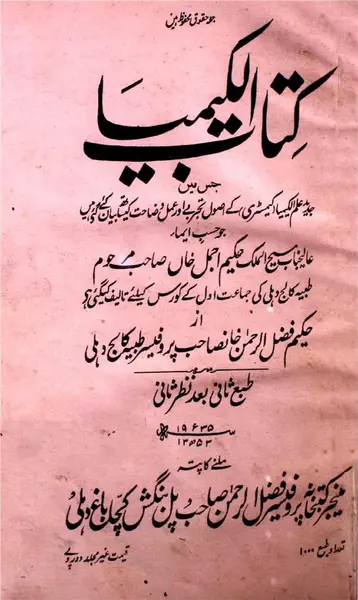 جملہ حقوق محفوظ ہیں
کتاب الکیمیا
جس میں
جدید علم الکیمیا کیمسٹری کے اصول تجربے اور عمل وضاحت کیساتھ بیان کئے گئے ہیں
جو حسب ایماء
عالیجناب مسیح الملک حکیم اجمل خاں صاحب مرحوم
طبیہ کالج دہلی کی جماعت اول کے کورس کیلئے تالیف کیگئی ہے
از
حکیم فضل الرحمن خانصاحب پروفیسر طبیہ کالج دہلی
طبع ثانی بعد نظر ثانی
۱۹۳۵
۱۳۵۳
ملنے کا پتہ
مینیجر کتبخانہ پروفیسر فضل الرحمن صاحب پل بنگش کچا باغ دہلی
تعداد طبع ۱۰۰۰
قیمت غیر مجلد دو روپے